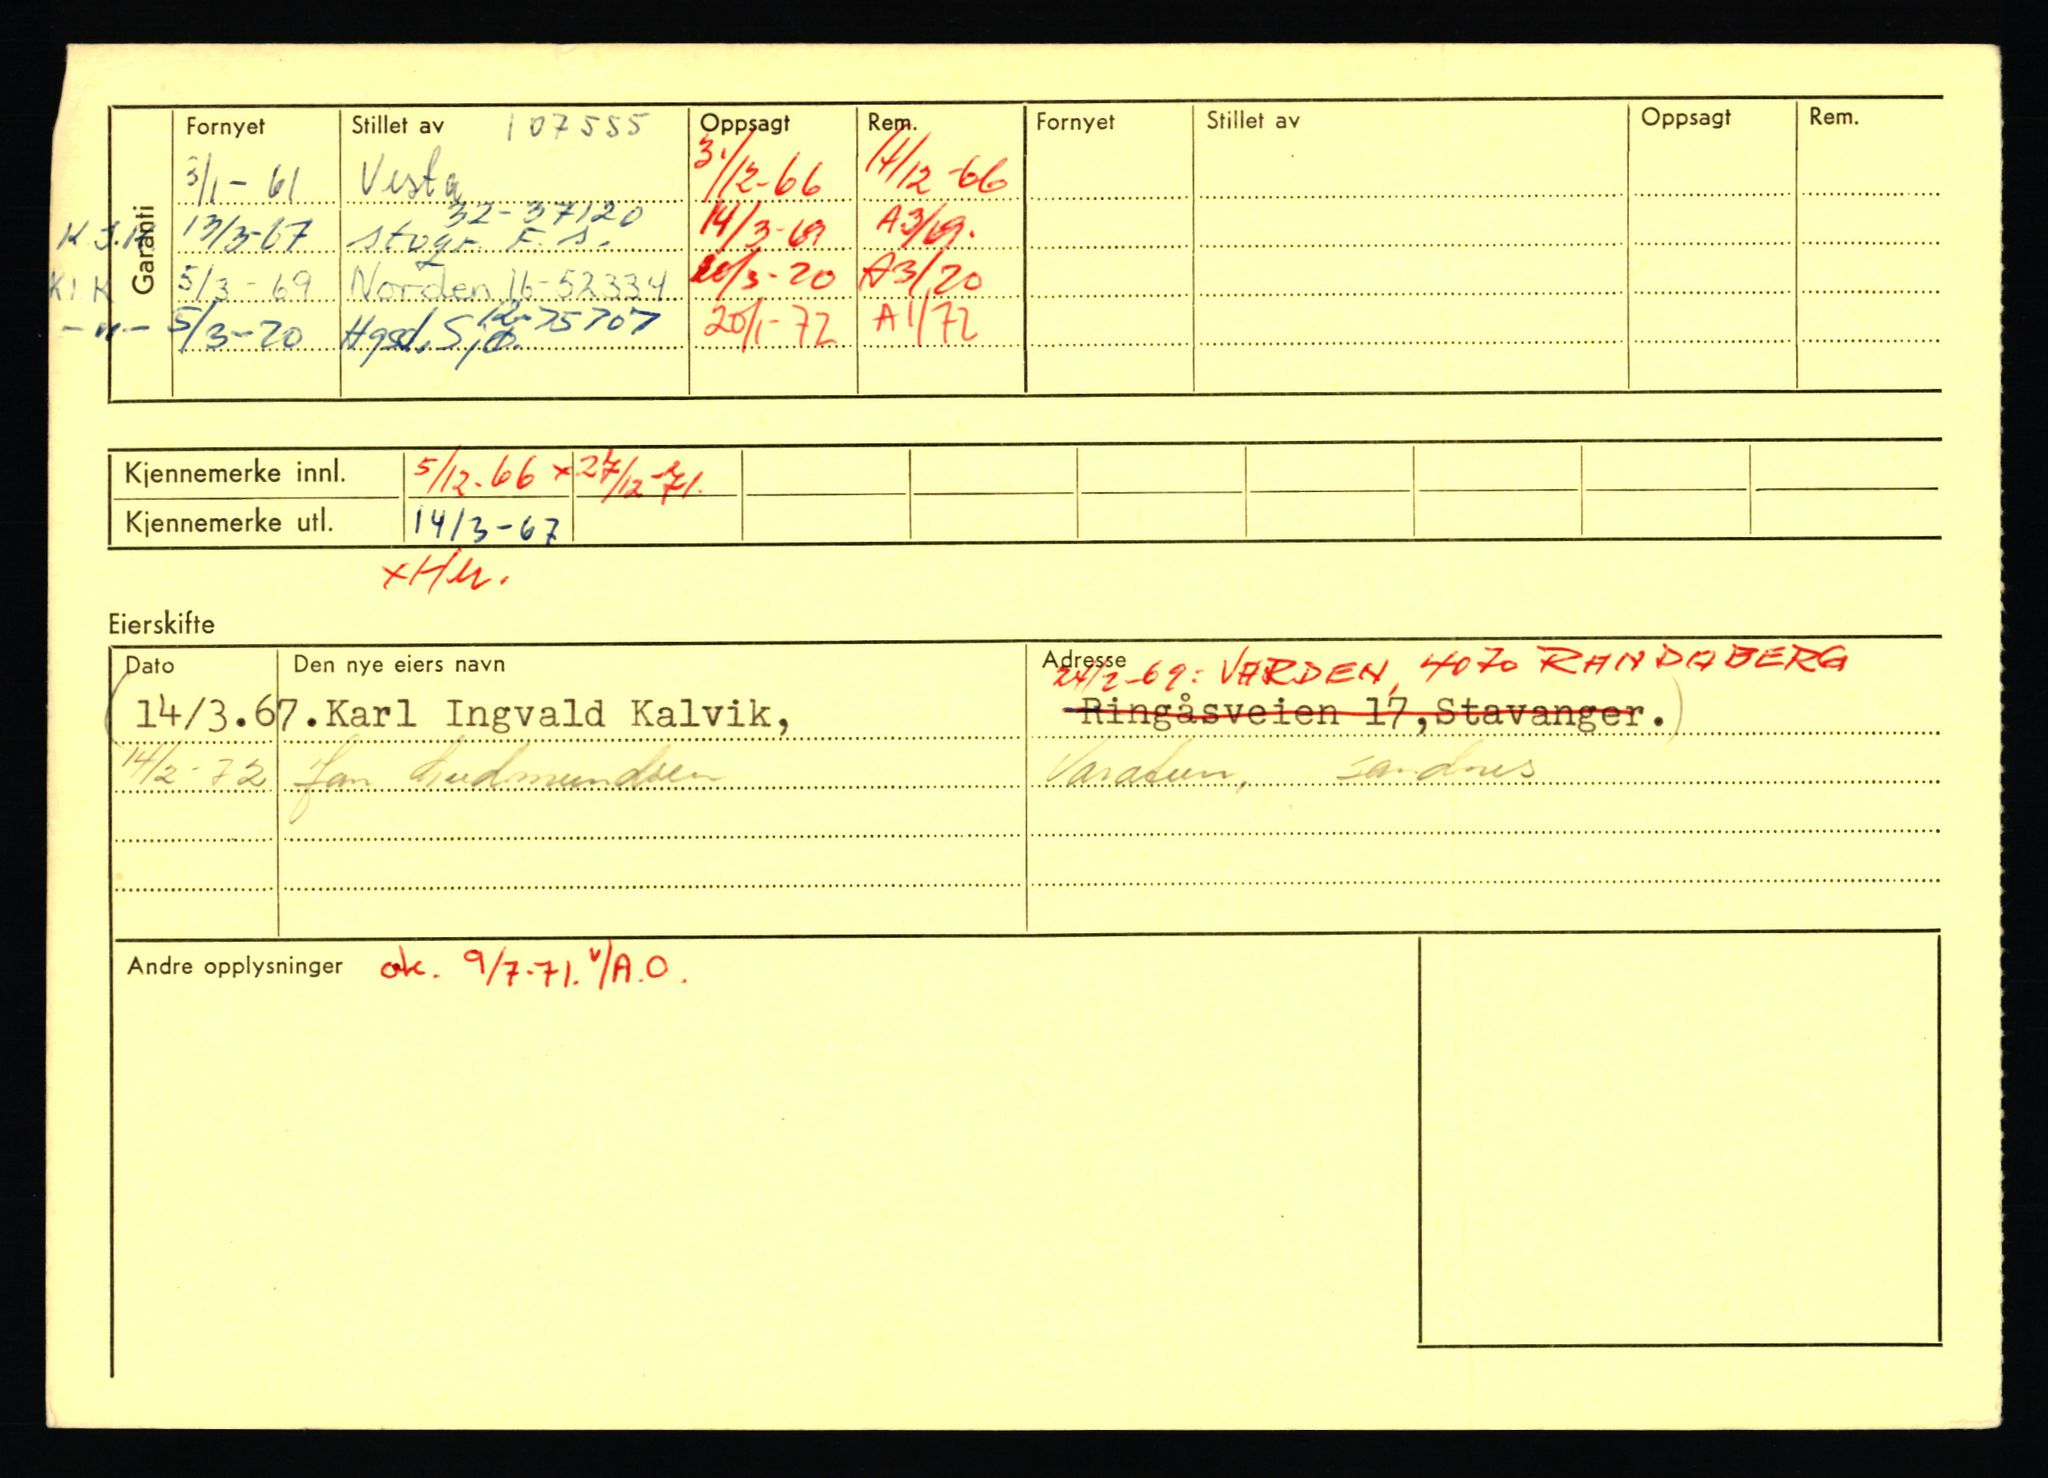 Garanti
Fornyet Stillet av 107555 Oppsagt Rem. Fornyet Stillet av Oppsagt Rem.
3/1 - 61 Vesta 3./12-66 14/12-66
32-37120
13/3-67 14/3-69 A3/69.
5/3 - 69 Norden 16-52334 A3/70
-"- 5/3-70 12-75707 20/1-72 A1/72
Kjennemerke innl. 5/12-66 x 27/12-71.
Kjennemerke utl. 14/3-67
Eierskifte
Dato Den nye eiers navn Adresse
24/2-69: VARDEN, 4070 RANDABERG
(14/3.67. Karl Ingvald Kalvik, Ringåsveien 17, Stavanger.)
14/2-72 Jan Gudmundsen Varatun, Sandnes
Andre opplysninger ok. 9/7-71. v/A.O.